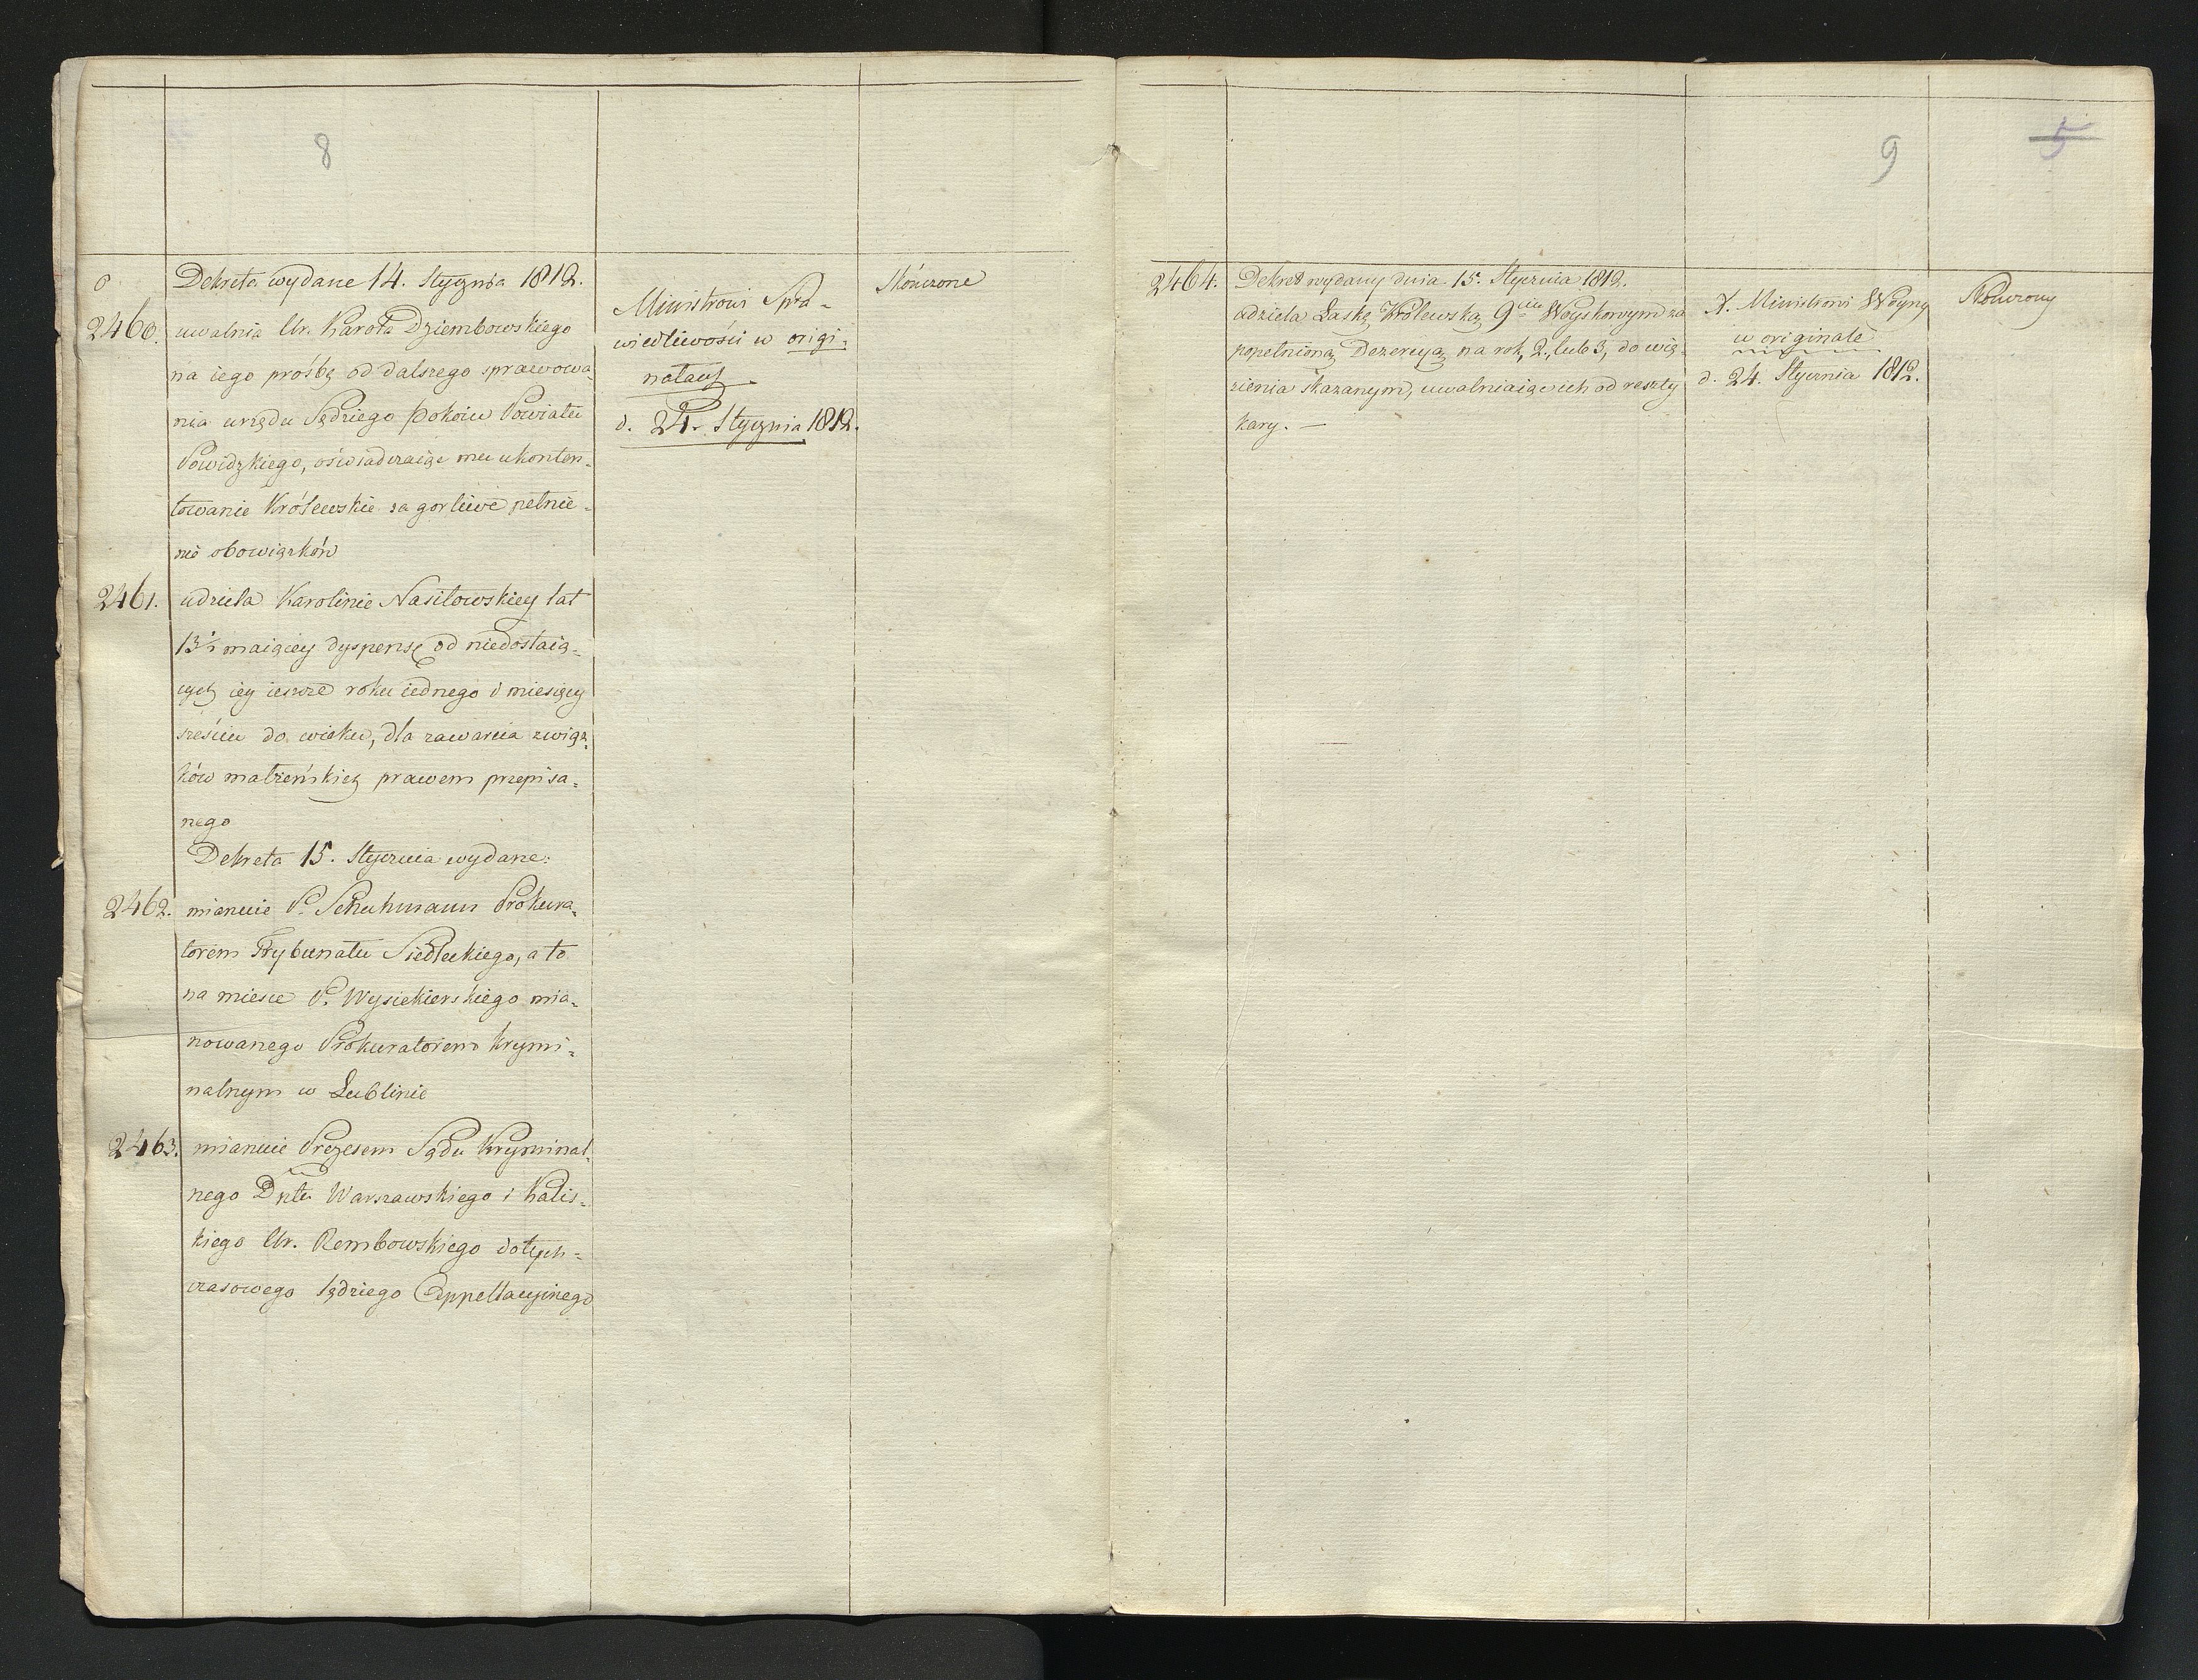 8
Dekreta wydane 14. Stycznia 1812.
2460. uwalnia Ur. Karola Dziembowskiego
na iego prośbę od dalszego sprawowa-
nia urzędu Sędziego Pokoiu Powiatu
Powidzkiego, oświadczaiąc mu ukonten-
towanie Królewskie za gorliwe pełnie-
nie obowiązków
2461. udziela Karolinie Nasiłowskiey lat
13½ maiącey dyspensę od niedostaią-
cych iey ieszcze roku iednego i miesięcy
sześciu do wieku, dla zawarcia związ-
ków małżeńskich prawem przepisa-
nego
Dekreta 15. Stycznia wydane:
2462. mianuie P. Schuhmann Prokura-
torem Trybunału Siedleckiego, a to
na miesce P. Wysiekierskiego mia-
nowanego Prokuratorem krymi-
nalnym w Lublinie
2463. mianuie Prezesem Sądu Kryminal-
nego Dptu Warszawskiego i Kalis-
kiego Ur. Rembowskiego dotych-
czasowego Sędziego Appellacyinego
Ministrowi Spra-
wiedliwości w origi-
nałach
d. 24. Stycznia 1812.
Skończone
9
5
2464. Dekret wydany dnia 15. Stycznia 1812.
udziela Łaskę Królewską 9ciu Woyskowym za
popełnioną Dezercyą na rok, 2, lub 3, do wię-
zienia skazanym, uwalniaiąc ich od reszty
kary. —
X. Ministrowi Woyny
w originale
d. 24. Stycznia 1812.
Skończony